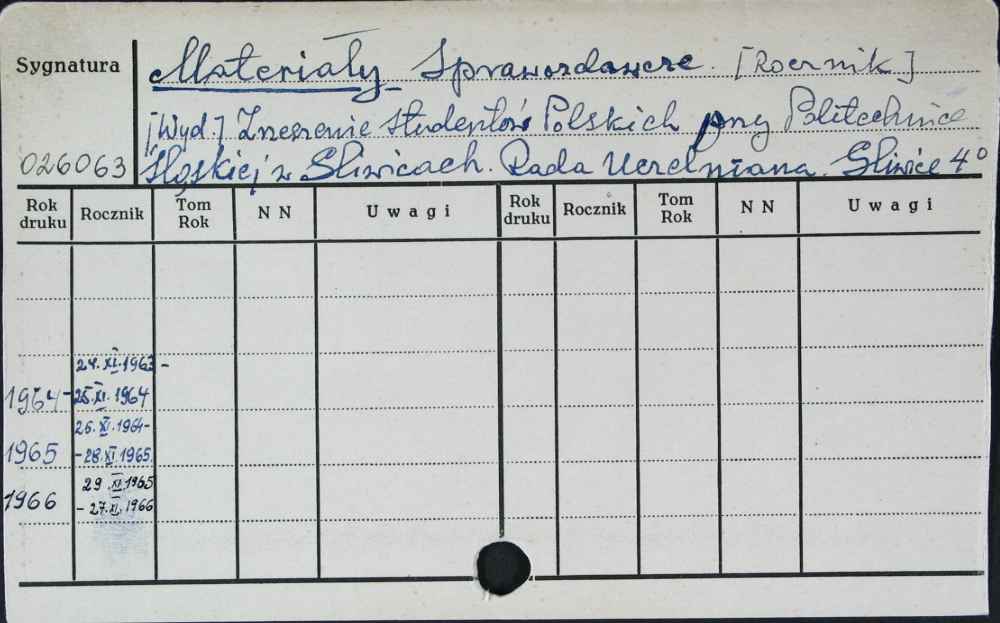 Sygnatura
Materiały Sprawozdawcze. [Rocznik]
[Wyd.] Zrzeszenie Studentów Polskich przy Politechnice
026063
Śląskiej w Gliwicach. Rada Uczelniana. Gliwice 4°
Rok druku Rocznik Tom Rok N N Uwagi Rok druku Rocznik Tom Rok N N Uwagi
24.XI.1963 -
1964 - 25.XI.1964
26.XI.1964 -
1965 - 28.XI.1965.
29.XI.1965
1966 - 27.XI.1966